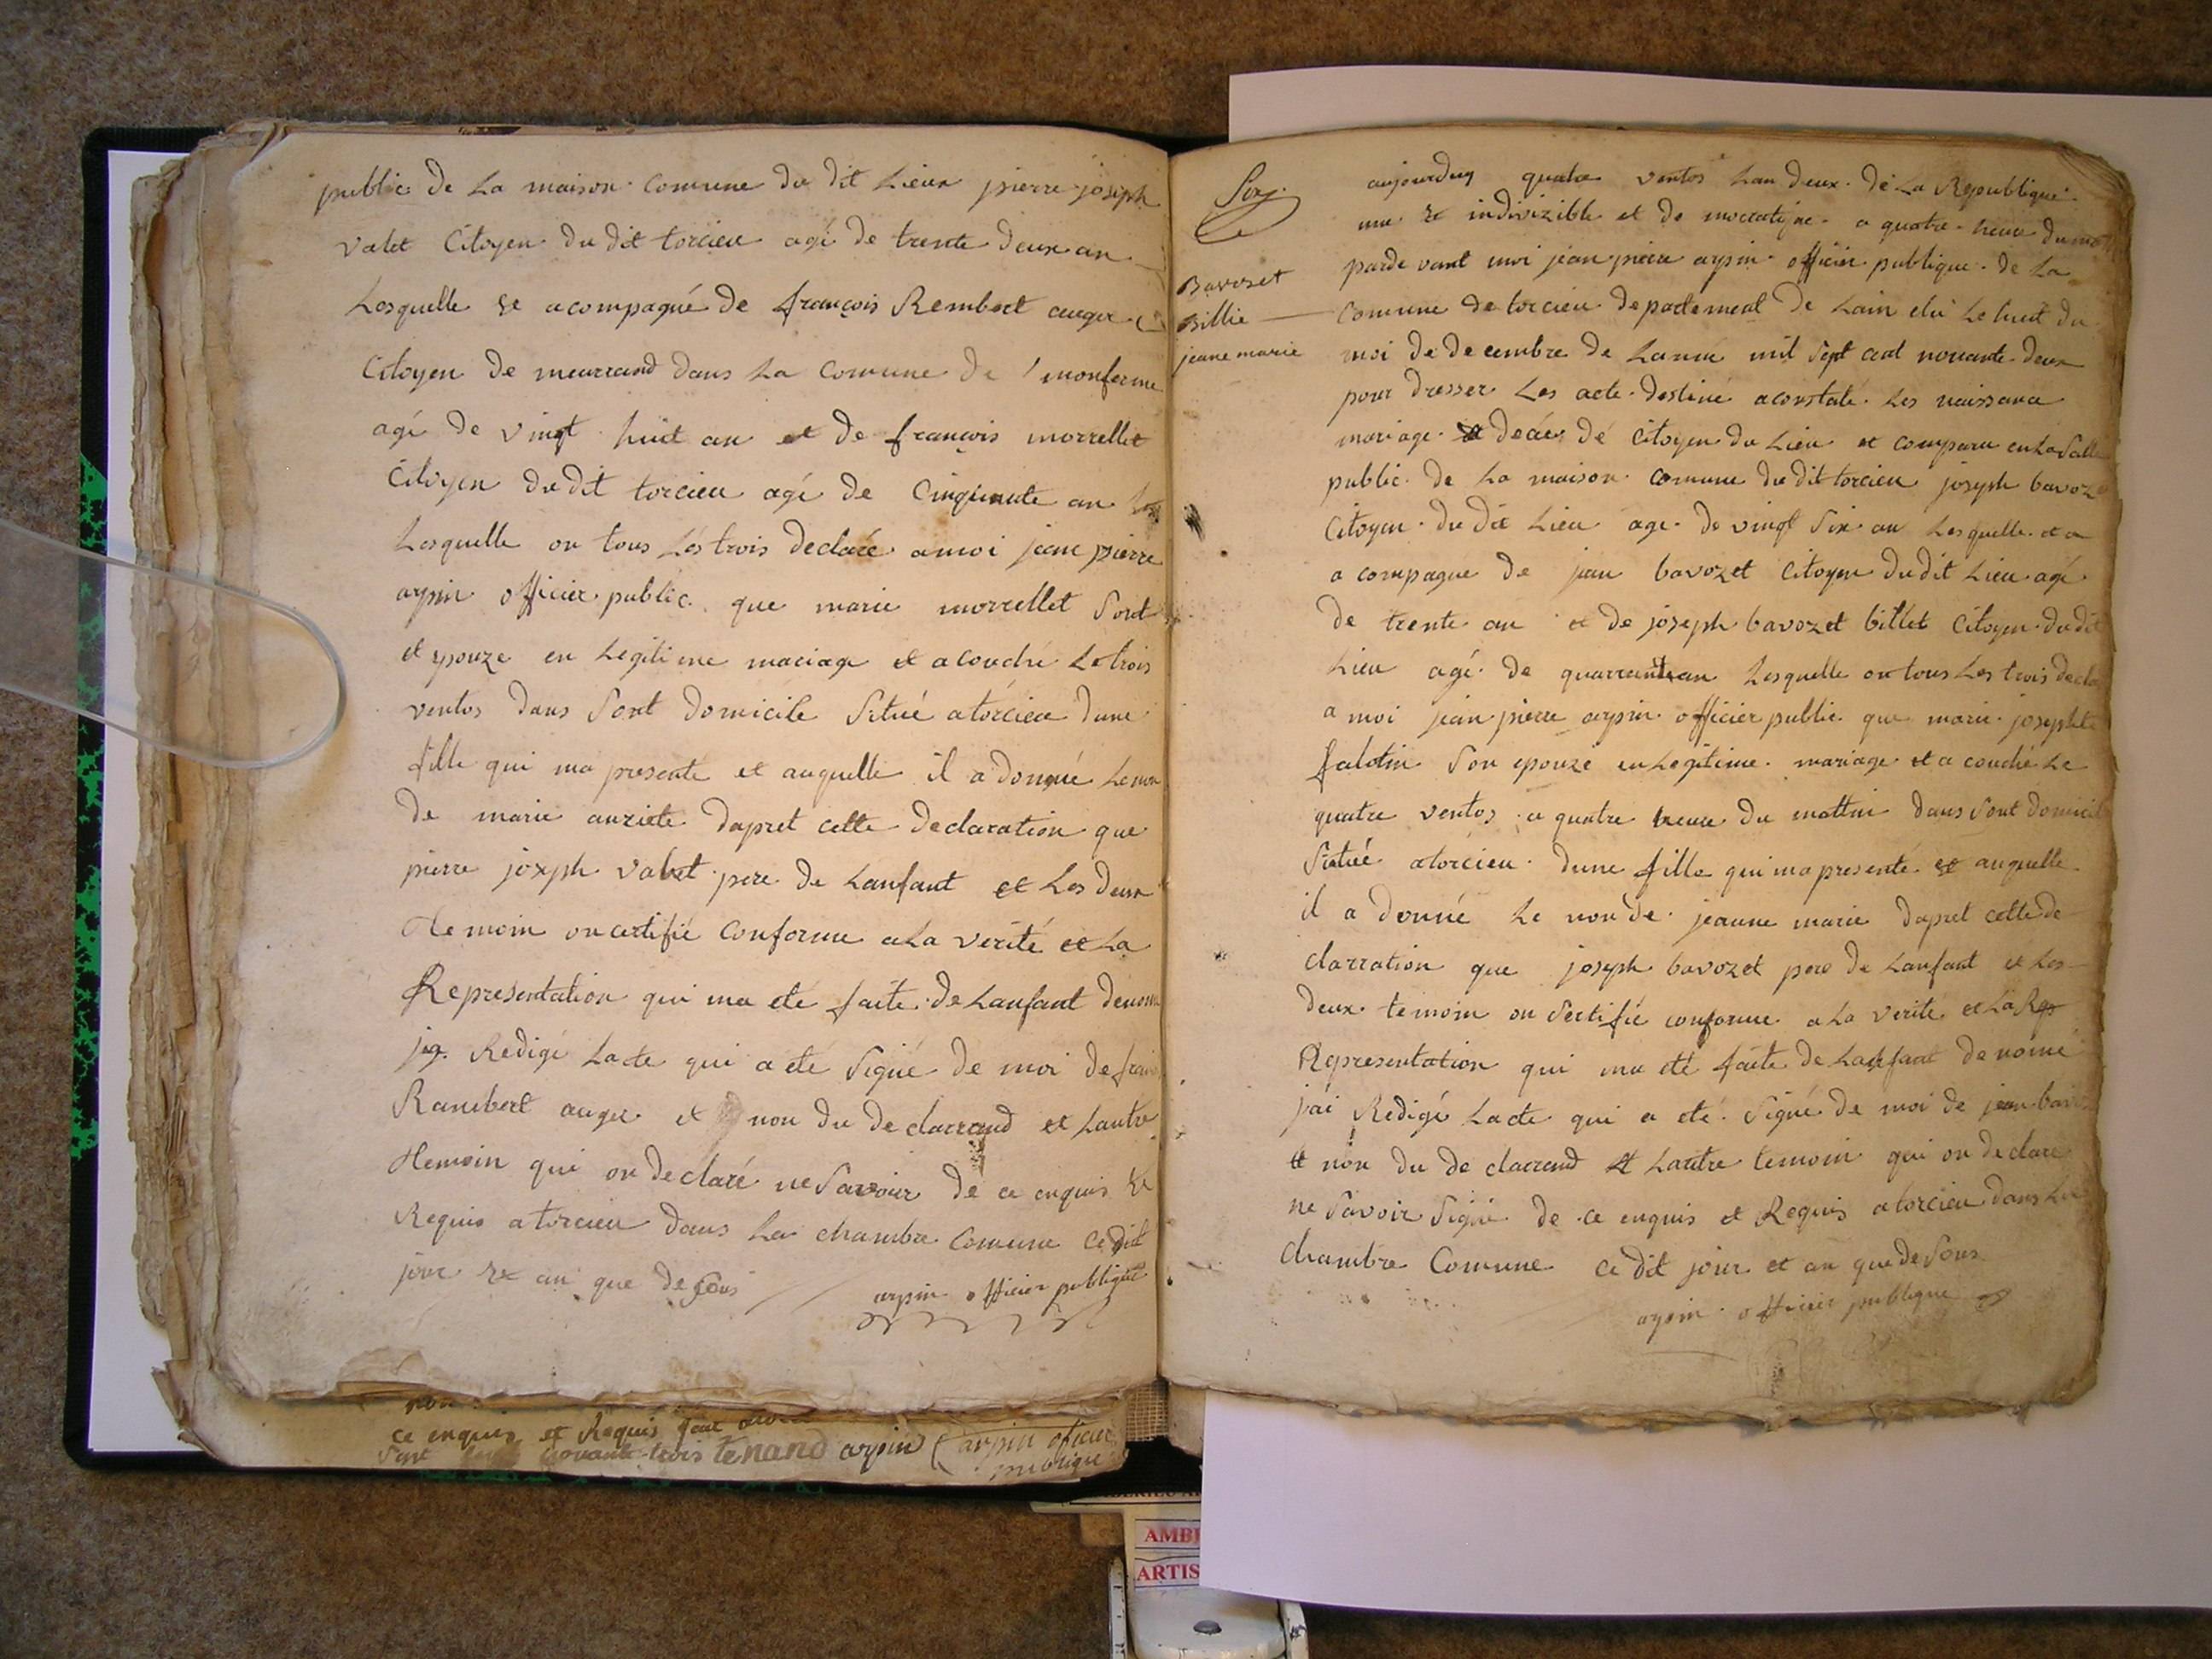 public de La maison Comune du dit Lieux pierre joseph
valet Citoyen du dit torcieu agé de trente deux an
Lesquelle et acompagné de françois Rembert auger
Citoyen de meurrand dans La Comune de monferme
agé de vingt huit an et de françois morrellet
Citoyen du dit torcieu agé de Cinquante an
Lesquelle on tous Les trois declaré amoi jean pierre
arpin officier public que marie morrellet Sont
et epouze en Legitime mariage et acouché Le trois
ventos dans Sont domicile Situé atorcieu dune
fille qui ma presenté et auquelle il a donné Le non
de marie anriete dapret cette declaration que
pierre joseph valet pere de Lanfant et Les deux
temoin on certifié Conforme ala verité et La
Representation qui ma eté faite de Lanfant denom
jay Redigé Lacte qui a eté Signé de moi de fran
Rambert auger et non du declarrand et Lautre
temoin qui on declaré ne Savoir de ce enquis et
Requis atorcieu dans La chambre Comune Cedit
jour et an que desous
arpin officier publique
non
ce enquis et Requis
Sept novante trois tenand arpin arpin oficier
publique
Bavozet
Billie
jeane marie
aujourduy quatre ventos Lan deux de La Republique
une et indivizible et de mocratique a quatre heure du
parde vant moi jean pierre arpin officier publique de La
Comune de torcieu departement de Lain elu Le huit du
moi de decembre de Lanné mil Sept cent nonante deux
pour dresser Les acte destiné aconstaté Les naissance
mariage deces dé Citoyen du Lieu et comparu en La Salle
public de La maison Comune du dit torcieu joseph bavoz
Citoyen du dit Lieu age de vingt Six an Lesquelle et a
a compagne de jean bavozet Citoyen du dit Lieu agé
de trente an et de joseph bavozet billet Citoyen du dit
Lieu agé de quarrante an Lesquelle on tous Les trois decla
a moi jean pierre arpin officier public que marie josephte
falotin Son epouze en Legitime mariage et a couché Le
quatre ventos a quatre heure du mattin dans Sont domicil
Situé atorcieu dune fille qui ma presenté et auquelle
il a donné Le non de jeanne marie dapret cette de
clarration que joseph bavozet pere de Lanfant et Les
deux temoin on Sertifié conforme a La verité et La Rep
Representation qui ma eté faite de Lanfant denomé
jai Redigé Lacte qui a eté Signé de moi de jean bavoz
et non du de clarrand et Lautre temoin qui on declare
ne Savoir Signé de ce enquis et Requis atorcieu dans La
Chambre Comune ce dit jour et an que de Sous
arpin officier publique
AMBI
ARTIS